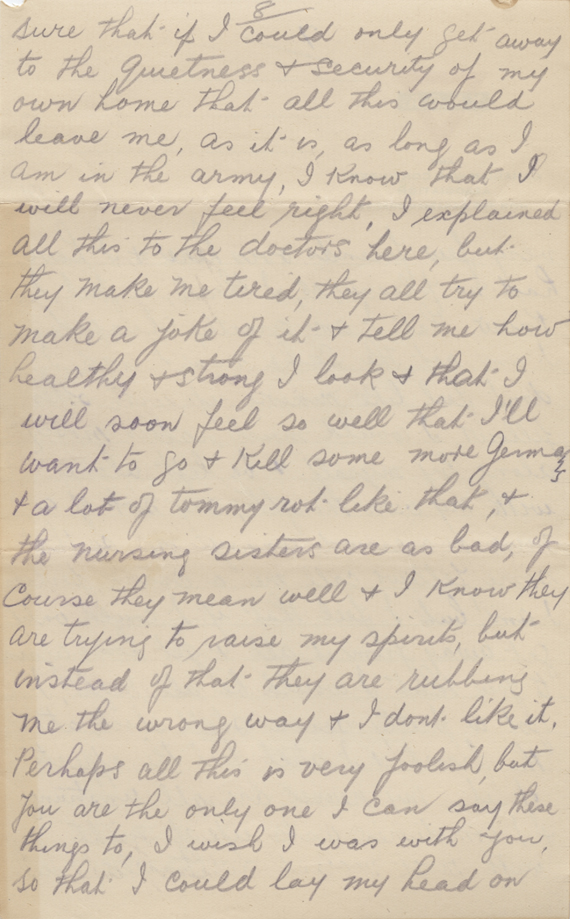 8
sure that if I could only get away
to the quietness & security of my
own home that all this would
leave me, as it is, as long as I
am in the army, I know that I
will never feel right, I explained
all this to the doctors here, but
they make me tired, they all try to
make a joke of it & tell me how
healthy & strong I look & that I
will soon feel so well that I'll
want to go & kill some more Germans
& a lot of tommy rot like that, &
the nursing sisters are as bad, of
course they mean well & I know they
are trying to raise my spirits, but
instead of that they are rubbing
me the wrong way & I dont like it.
Perhaps all this is very foolish, but
you are the only one I can say these
things to, I wish I was with you,
so that I could lay my head on